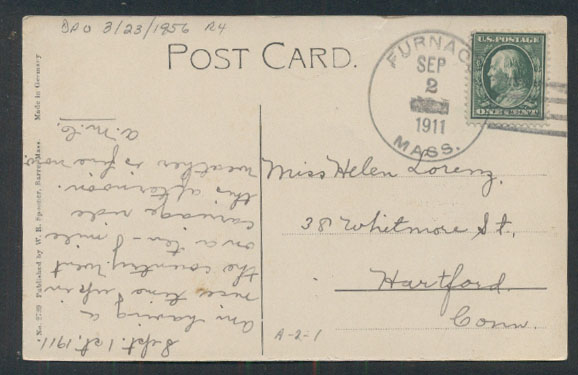 DPO 3/23/1956 R4
POST CARD.
FURNACE
SEP
2
1911
MASS.
U.S. POSTAGE
ONE CENT
Sept. 1st. 1911
Am having a
nice time up in
the country. Went
on a ten-8 mile
carriage ride
this afternoon.
Weather is fine now
A. M. C.
Miss Helen Lorenz,
38 Whitmore St.,
Hartford.
Conn.
A-2-1
Published by W. H. Spencer, Barre, Mass.
Made in Germany